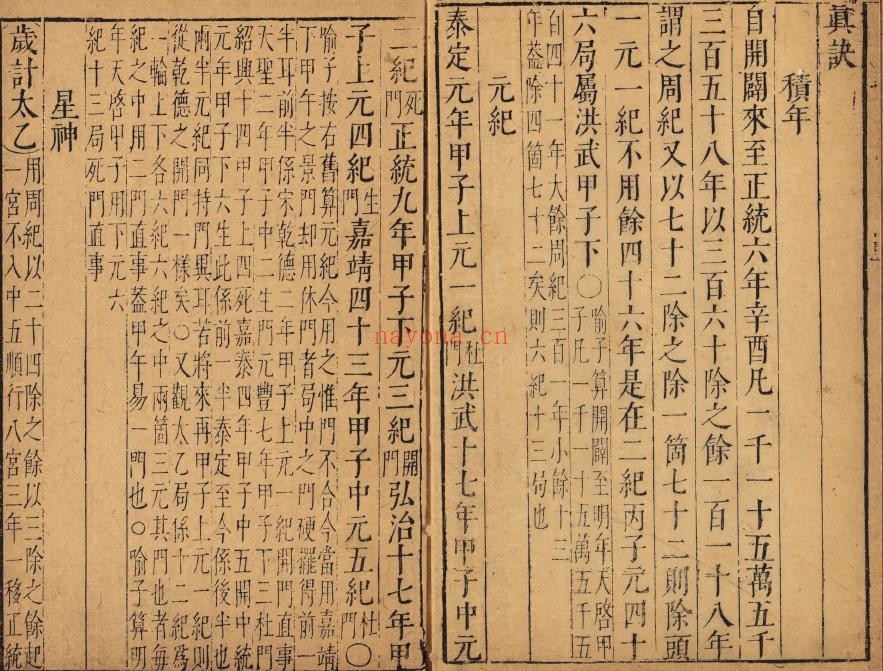 真訣
積年
自開闢來至正統六年辛酉凡一千一十五萬五千
三百五十八年以三百六十除之餘一百一十八年
謂之周紀又以七十二除之除一箇七十二則除頭
一元一紀不用餘四十六年是在二紀丙子元四十
六局屬洪武甲子下○喻子算開闢至明年天啓甲
子凡一千一十五萬五千五
百四十一年大餘周紀三百一年小餘十三
年葢除四箇七十二矣則六紀十三局也
元紀
泰定元年甲子上元一紀杜門洪武十七年甲子中元
二紀死門正統九年甲子下元三紀開門弘治十七年甲
子上元四紀生門嘉靖四十三年甲子中元五紀杜門○
喻子按右舊算元紀今用之惟門不合今當用嘉靖
下甲午之景門却用休門者局中之門硬擺得前一
半耳前半係宋乾德二年甲子上元一紀開門直事
天聖二年甲子中二生門元豐七年甲子下三杜門
紹興十四甲子上四死嘉泰四年甲子中五開中統
元年甲子下六生此係前一半泰定至今係後半也
兩半元紀同持門異耳若將來再甲子上元一紀則
從乾德之開門一樣矣○又觀太乙局係十二紀爲
一輪上下各六紀六紀之中兩箇三元其門也者每
紀之中用二門直事葢甲午易一門也○喻子算明
年天啓甲子用下元六
紀十三局死門直事
星神
歲計太乙用周紀以二十四除之餘以三除之餘起
一宮不入中五順行八宮三年一移正統
nayona.cn